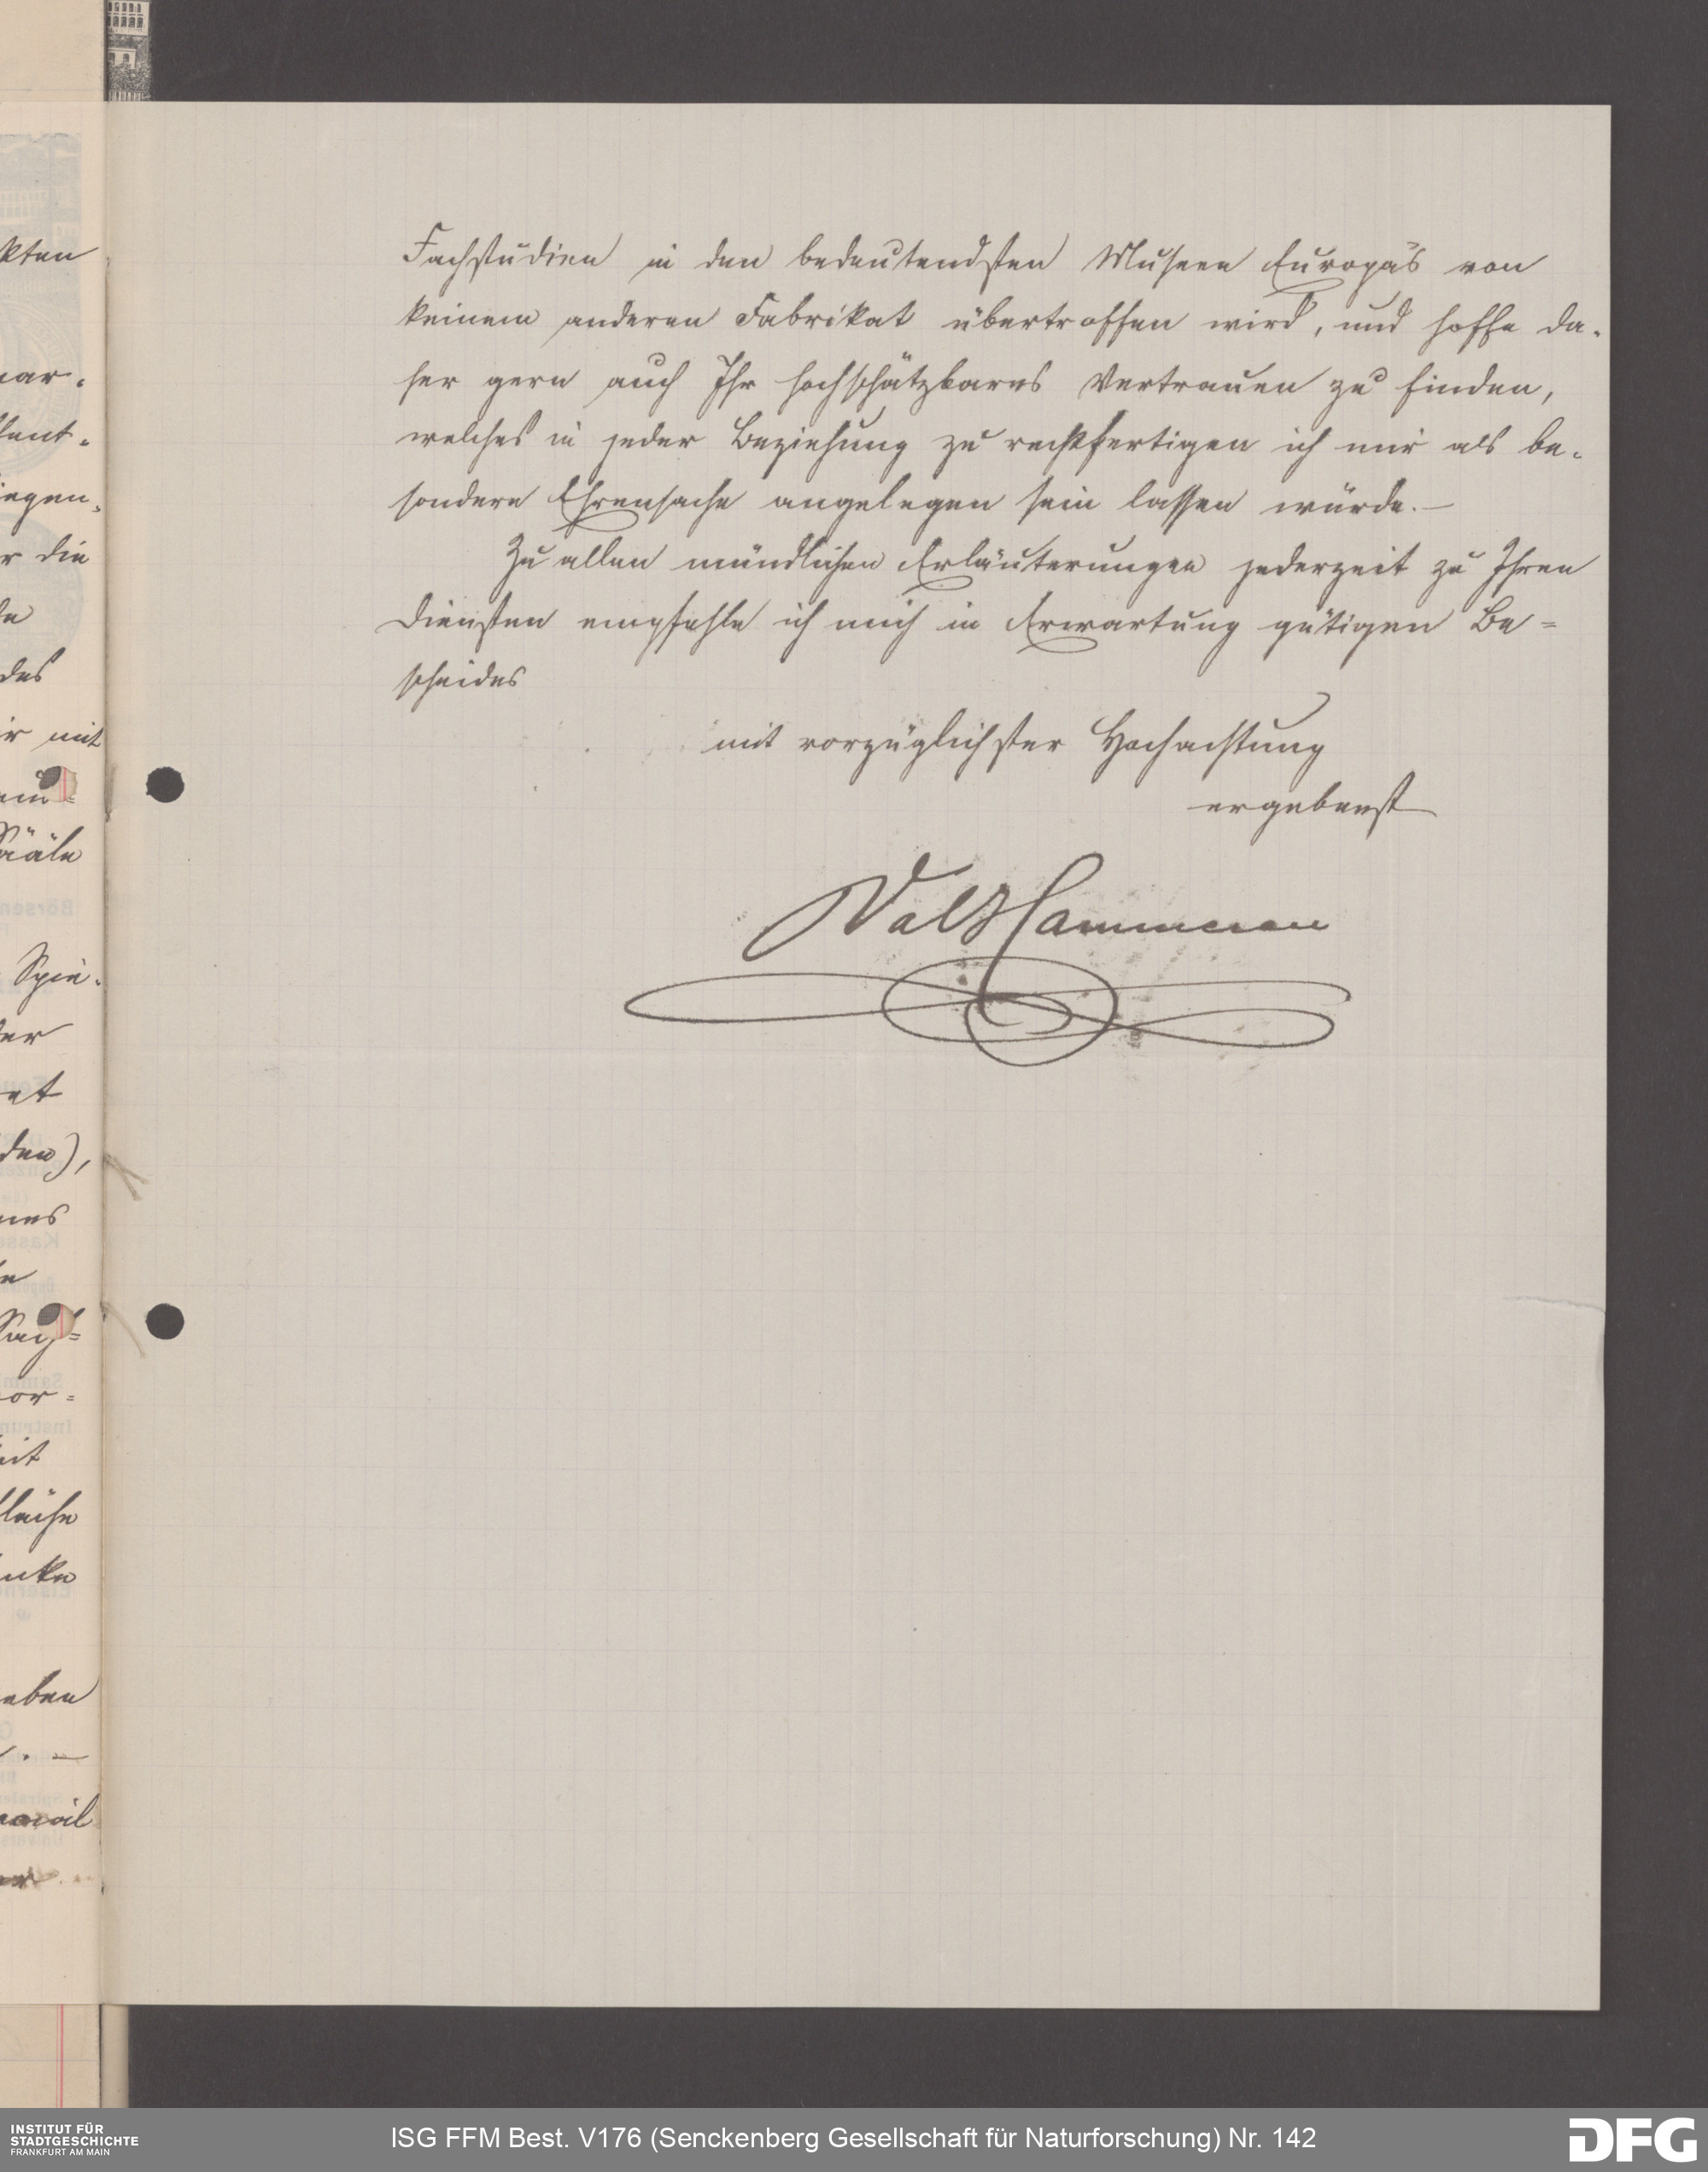 Fachstudien in den bedeutendsten Museen Europa's von
keinem anderen Fabrikat übertroffen wird, und hoffe da-
her gern auch Ihr hochschätzbares Vertrauen zu finden,
welches in jeder Beziehung zu rechtfertigen ich mir als be-
sondere Ehrensache angelegen sein lassen würde. —
Zu allen mündlichen Erläuterungen jederzeit zu Ihren
Diensten empfehle ich mich in Erwartung gütigen Be=
scheides
mit vorzüglichster Hochachtung
ergebenst
Val Hammeran
kten
der die
des
mit
Sääle
Spie-
den),
eben
INSTITUT FÜR
STADTGESCHICHTE
FRANKFURT AM MAIN
ISG FFM Best. V176 (Senckenberg Gesellschaft für Naturforschung) Nr. 142
DFG